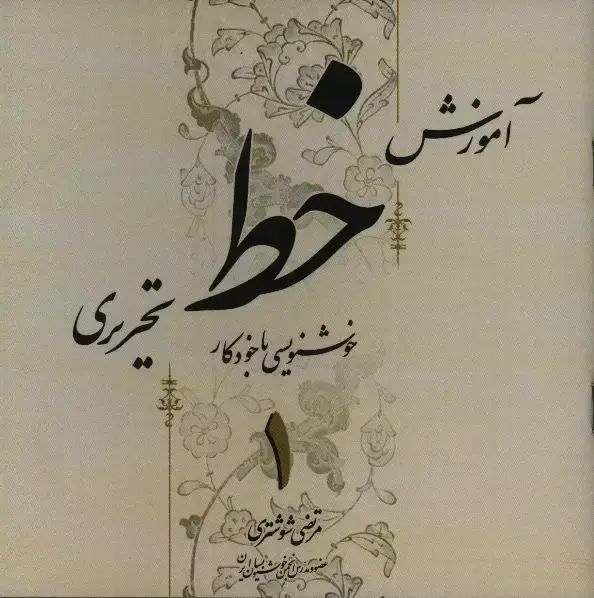 آموزش
خط
تحریری
خوشنویسی با خودکار
۱
مرتضی شوشتری
عضو و مدرس انجمن خوشنویسان ایران